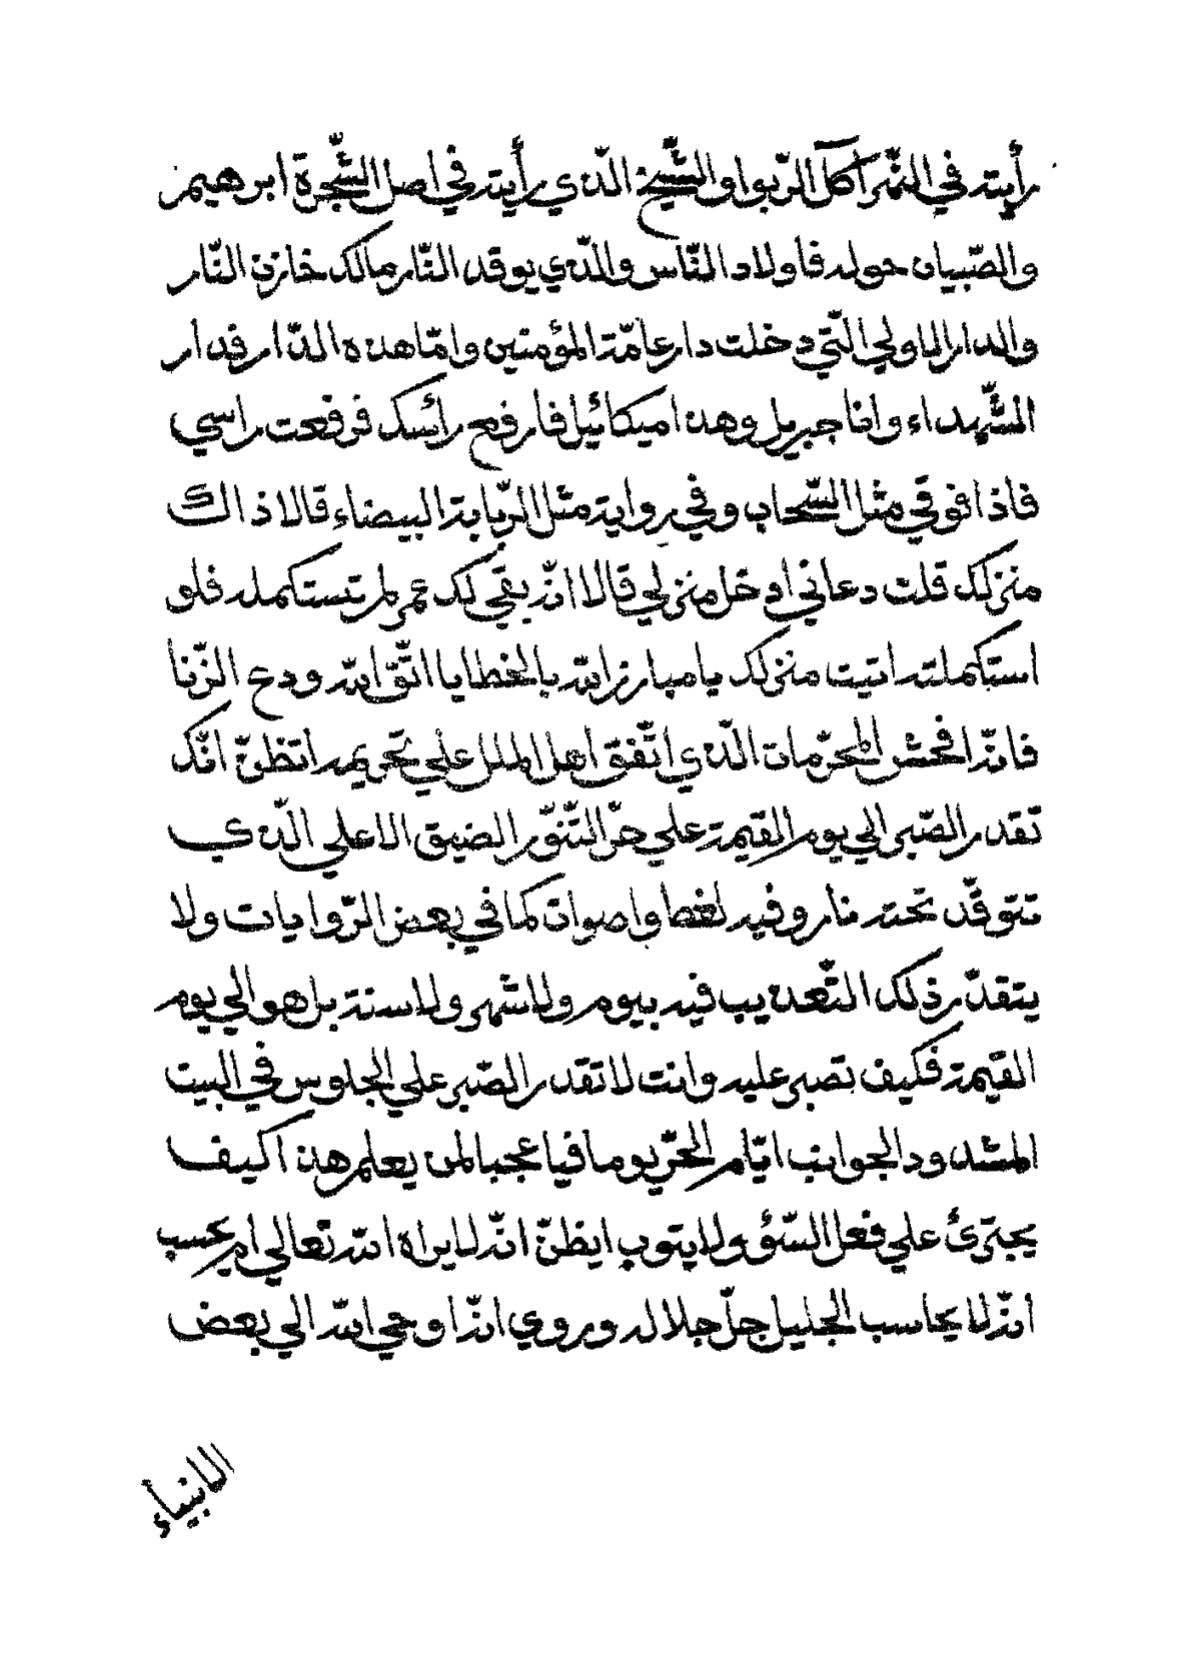 رأيته في النّهر آكل الرّبوا والشّيخ الّذي رأيته في اصل الشّجرة ابرهيم
والصّبيان حوله فاولاد النّاس والّذي يوقد النّار مالك خازن النّار
والدار الاولي الّتي دخلت دار عامّة المؤمنين وامّا هذه الدّار فدار
الشّهداء وانا جبريل وهذا ميكائيل فارفع رأسك فرفعت راسي
فاذا فوقي مثل السّحاب وفي رواية مثل الرّبابة البيضاء قالا ذالك
منزلك قلت دعاني ادخل منزلي قالا انّه بقي لك عمر لم تستكمله فلو
استكملته اتيت منزلك يا مبارز الله بالخطايا اتّق الله ودع الزّنا
فانّه افحش المحرّمات الّذي اتّفق اهل الملل علي تحريمه اتظنّ انّك
تقدر الصّبر الي يوم القيمة علي حرّ التّنّور الضيق الاعلي الّذي
تتوقّد تحته نار وفيه لغط واصوات كما في بعض الرّوايات ولا
يتقدّر ذلك التّعذيب فيه بيوم ولا شهر ولا سنة بل هو الي يوم
القيمة فكيف تصبر عليه وانت لا تقدر الصّبر علي الجلوس في البيت
المشدود الجوانب ايّام الحرّ يوما فيا عجبا لمن يعلم هذا كيف
يجترئ علي فعل السّؤ ولا يتوب ايظنّ انّه لا يراه الله تعالي ام يحسب
انّه لا يحاسب الجليل جلّ جلاله وروي انّه اوحي الله الي بعض
الانبيأء